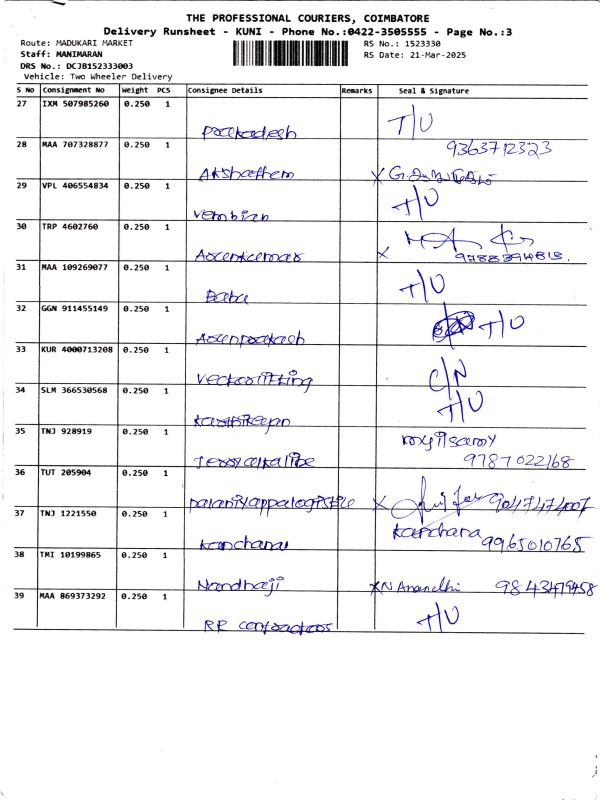 THE PROFESSIONAL COURIERS, COIMBATORE
Delivery Runsheet - KUNI - Phone No.:0422-3505555 - Page No.:3
Route: MADUKARI MARKET RS No.: 1523330
Staff: MANIMARAN RS Date: 21-Mar-2025
DRS No.: DCJB152333003
Vehicle: Two Wheeler Delivery
S No Consignment No Weight PCS Consignee Details Remarks Seal & Signature
27 IXM 507985260 0.250 1
Prakadesh T/U
28 MAA 707328877 0.250 1 9363712323
Akshathem X
29 VPL 406554834 0.250 1 T/U
Vembian
30 TRP 4602760 0.250 1
X 9788394813.
31 MAA 109269077 0.250 1 T/U
Babu
32 GGN 911455149 0.250 1
Aounprakash T/U
33 KUR 4000713208 0.250 1 C/N
34 SLM 366530568 0.250 1 T/U
Karthikeyan
35 TNJ 928919 0.250 1
9787022168
36 TUT 205904 0.250 1
X 9047474007
37 TNJ 1221550 0.250 1 Kanchana
Kanchana 9965010765
38 TMI 10199865 0.250 1
Nandhaji X N Anandhi 9843479458
39 MAA 869373292 0.250 1 T/U
RR contractors